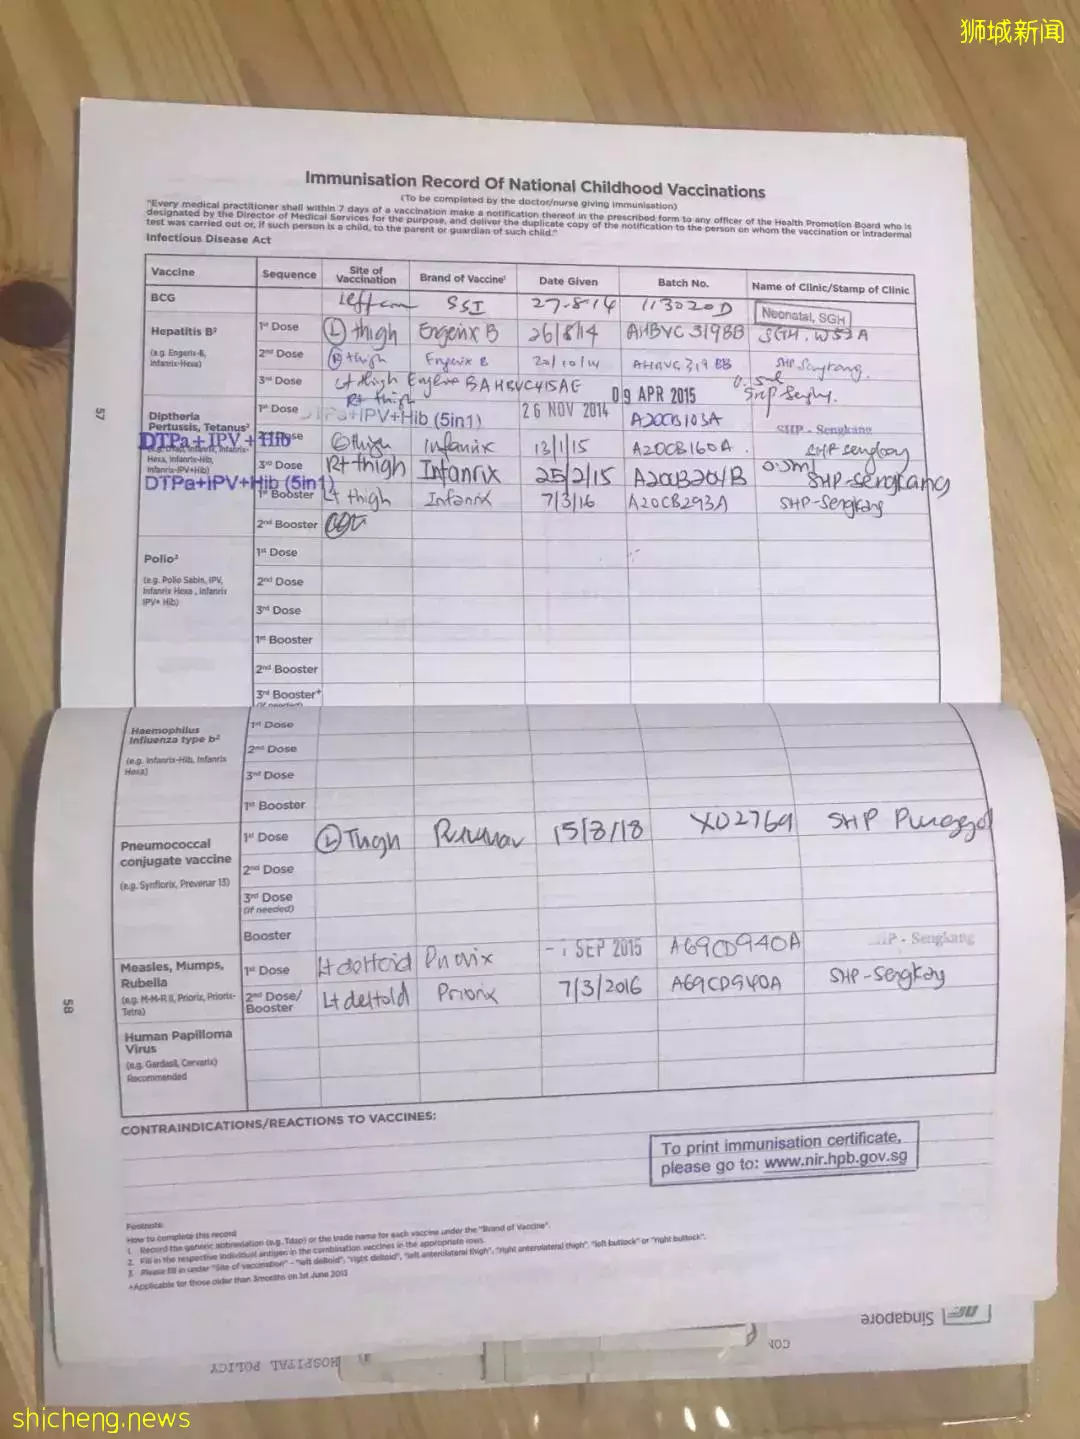 狮城新闻
Immunisation Record Of National Childhood Vaccinations
(To be completed by the doctor/nurse giving immunisation)
"Every medical practitioner shall within 7 days of a vaccination make a notification thereof in the prescribed form to any officer of the Health Promotion Board who is
designated by the Director of Medical Services for the purpose, and deliver the duplicate copy of the notification to the person on whom the vaccination or intradermal
test was carried out or, if such person is a child, to the parent or guardian of such child."
Infectious Disease Act
Vaccine Sequence Site of Vaccination Brand of Vaccine¹ Date Given Batch No. Name of Clinic/Stamp of Clinic
BCG SSI 27.8.14 113020D Neonatal, SGH
Hepatitis B² 1st Dose (L) thigh Engerix B 26/8/14 AHBVC319BB SGH. W53A
(e.g. Engerix-B, Infanrix-Hexa) 2nd Dose (R) thigh Engerix B 20/10/14 AHBVC319BB SHP Sengkang.
3rd Dose Lt thigh Engerix B AHBVC415AE 09 APR 2015
57
Diptheria Pertussis, Tetanus² 1st Dose Rt thigh DTPa+IPV+Hib (5in1) 26 NOV 2014 A20CB103A SHP - Sengkang
DTPa+IPV+Hib
2nd Dose (L) thigh Infanrix 13/1/15 A20CB160A SHP Sengkang
Hexa, Infanrix-Hib, Infanrix-IPV+Hib) 3rd Dose Rt thigh Infanrix 25/2/15 A20CB201B 0.5ml SHP-Sengkang
DTPa+IPV+Hib (5in1)
1st Booster Lt thigh Infanrix 7/3/16 A20CB293A SHP-Sengkang
2nd Booster
Polio² 1st Dose
(e.g. Polio Sabin, IPV, Infanrix Hexa, Infanrix IPV+ Hib) 2nd Dose
3rd Dose
1st Booster
2nd Booster
3rd Booster+
(if needed)
Haemophilus Influenza type b² 1st Dose
2nd Dose
(e.g. Infanrix-Hib, Infanrix Hexa) 3rd Dose
1st Booster
Pneumococcal conjugate vaccine 1st Dose (L) Thigh 15/8/18 X02769 SHP Punggol
(e.g. Synflorix, Prevenar 13) 2nd Dose
3rd Dose
(if needed)
Booster
Measles, Mumps, Rubella 1st Dose Lt deltoid Priorix - 1 SEP 2015 A69CD940A SHP - Sengkang
58
(e.g. M-M-R II, Priorix, Priorix-Tetra) 2nd Dose/ Booster Lt deltoid Priorix 7/3/2016 A69CD940A SHP-Sengkang
Human Papilloma Virus
(e.g. Gardasil, Cervarix)
Recommended
CONTRAINDICATIONS/REACTIONS TO VACCINES:
To print immunisation certificate,
please go to: www.nir.hpb.gov.sg
Footnote:
How to complete this record
1. Record the generic abbreviation (e.g. Tdap) or the trade name for each vaccine under the "Brand of Vaccine".
2. Fill in the respective individual antigen in the combination vaccines in the appropriate rows.
3. Please fill in under "Site of vaccination" - "left deltoid", "right deltoid", "left anterolateral thigh", "right anterolateral thigh", "left buttock" or "right buttock".
+Applicable for those older than 3months on 1st June 2013
Singapore
HOSPITAL POLICY
shicheng.news